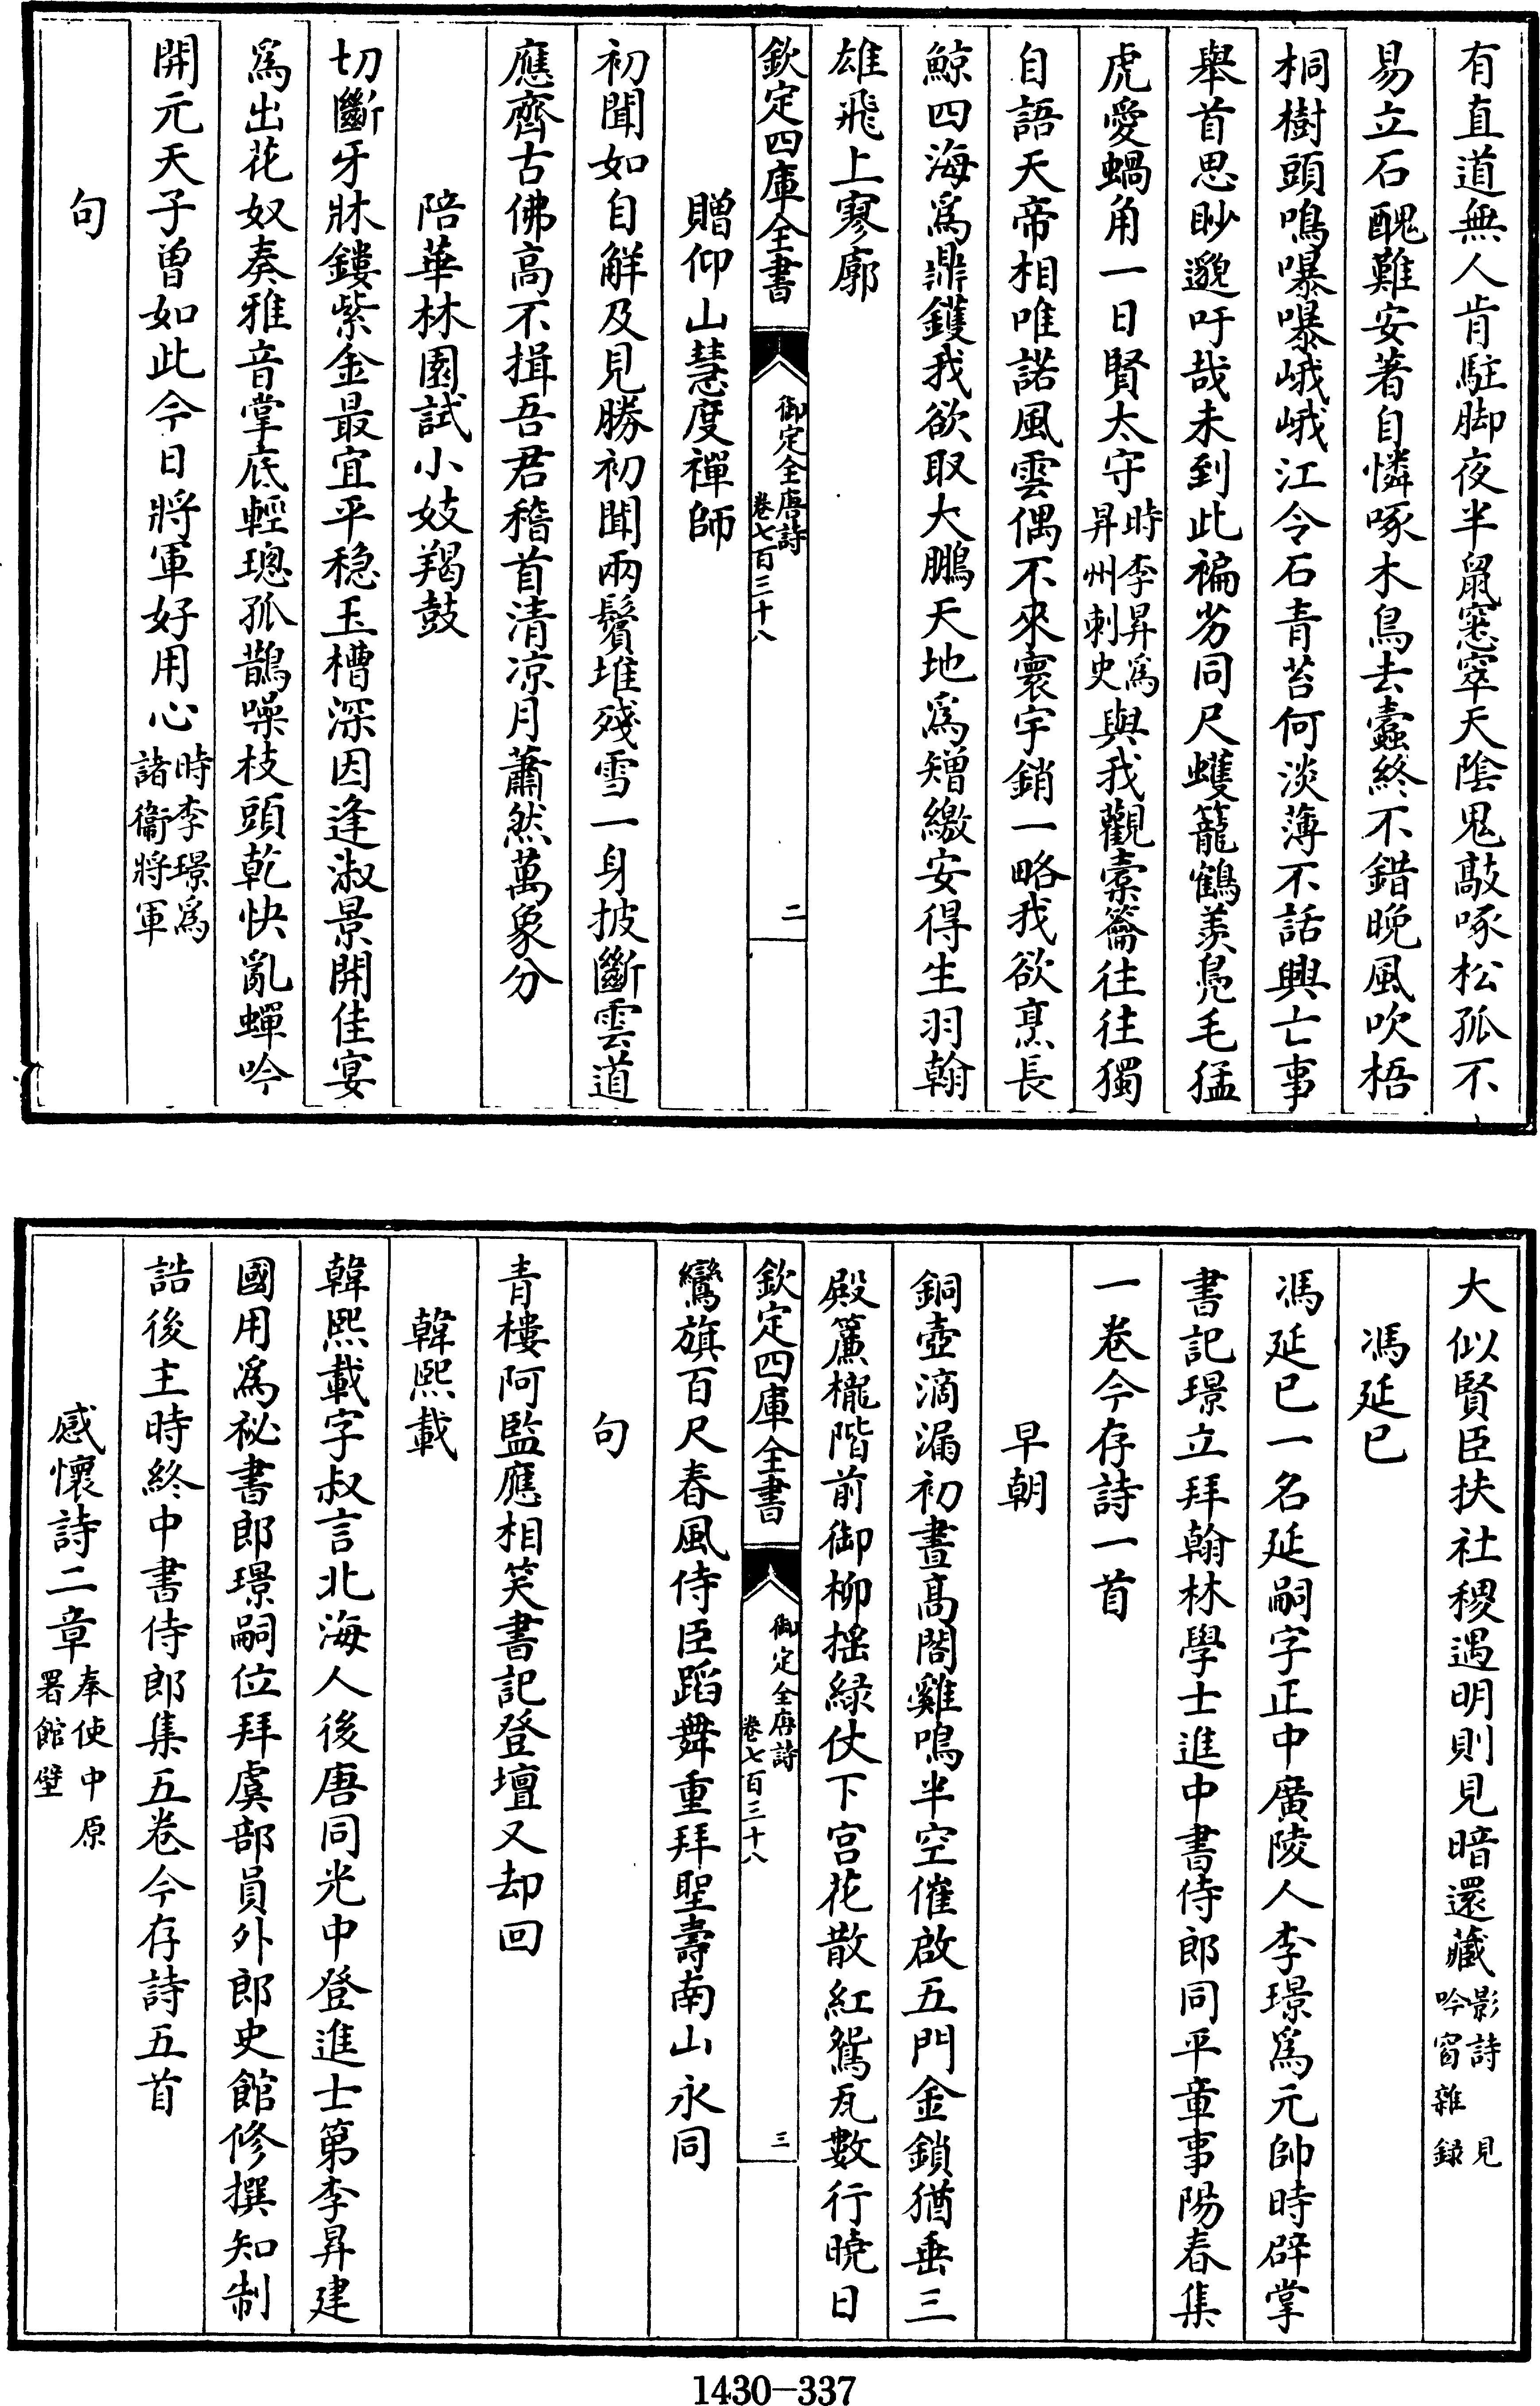 有直道無人肯駐脚夜半鼠窸窣天陰鬼敲啄松孤不
易立石醜難安著自憐啄木鳥去蠹終不錯晚風吹梧
桐樹頭鳴嚗嚗峨峨江令石青苔何淡薄不話興亡事
舉首思眇邈吁哉未到此褊劣同尺蠖籠鶴羨鳧毛猛
虎愛蝸角一日賢太守時李昪為昇州刺史與我觀橐籥往往獨
自語天帝相唯諾風雲偶不來寰宇銷一略我欲烹長
鯨四海為鼎鑊我欲取大鵬天地為矰繳安得生羽翰
雄飛上寥廓
欽定四庫全書
御定全唐詩
卷七百三十八
二
贈仰山慧度禪師
初聞如自解及見勝初聞兩鬢堆殘雪一身披斷雲道
應齊古佛高不揖吾君稽首清凉月蕭然萬象分
陪華林園試小妓羯鼓
切斷牙牀鏤紫金最宜平穏玉槽深因逢淑景開佳宴
為出花奴奏雅音掌底輕璁孤鵲噪枝頭乾快亂蟬吟
開元天子曽如此今日將軍好用心時李璟為諸衞將軍
句
大似賢臣扶社稷遇明則見暗還藏影詩見吟窗雜録
馮延已
馮延已一名延嗣字正中廣陵人李璟為元帥時辟掌
書記璟立拜翰林學士進中書侍郎同平章事陽春集
一卷今存詩一首
早朝
銅壺滴漏初晝髙閣雞鳴半空催啟五門金鎖猶垂三
殿簾櫳階前御柳揺緑仗下宫花散紅鴛瓦數行曉日
鸞旗百尺春風侍臣蹈舞重拜聖壽南山永同
欽定四庫全書
御定全唐詩
卷七百三十八
三
句
青樓阿監應相笑書記登壇又却回
韓熙載
韓熙載字叔言北海人後唐同光中登進士第李昪建
國用為祕書郎璟嗣位拜虞部員外郎史館修撰知制
誥後主時終中書侍郎集五卷今存詩五首
感懷詩二章奉使中原署館壁
1430-337